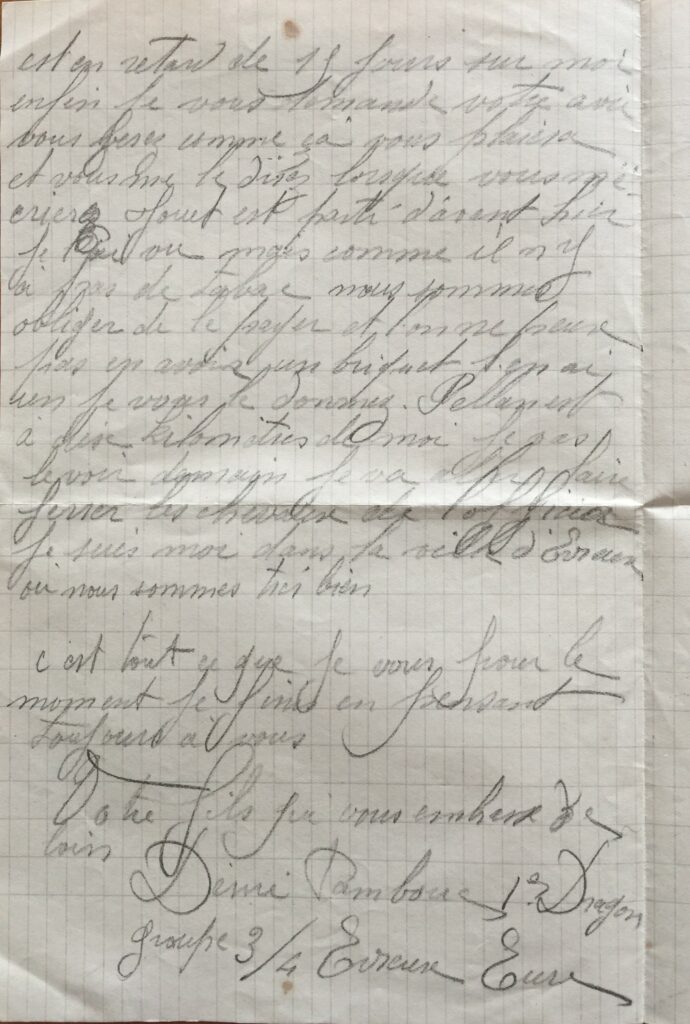 est en retard de 15 jours sur moi
enfin je vous demande votre avis
vous ferez comme ça vous plaira
et vous me le direz lorsque vous m'é
crierez Jouet est parti d'avant hier
je l'ai vu mais comme il n y
à pas de tabac nous sommes
obliger de le payer et l'on ne peux
pas en avoir un briquet j'en ai
un je vous le donnez. Pellan est
à dix kilomètres de moi je vas
le voir demain je va faire
ferrer les chevaux de l'officier
Je suis moi dans la ville d'Evreux
où nous sommes très bien
c'est tout ce que je vous pour le
moment je finis en pensant
toujours à vous
Votre fils qui vous embrasse de
loin
Pambouc 1er Dragon
groupe 3/4 Evreux Eure